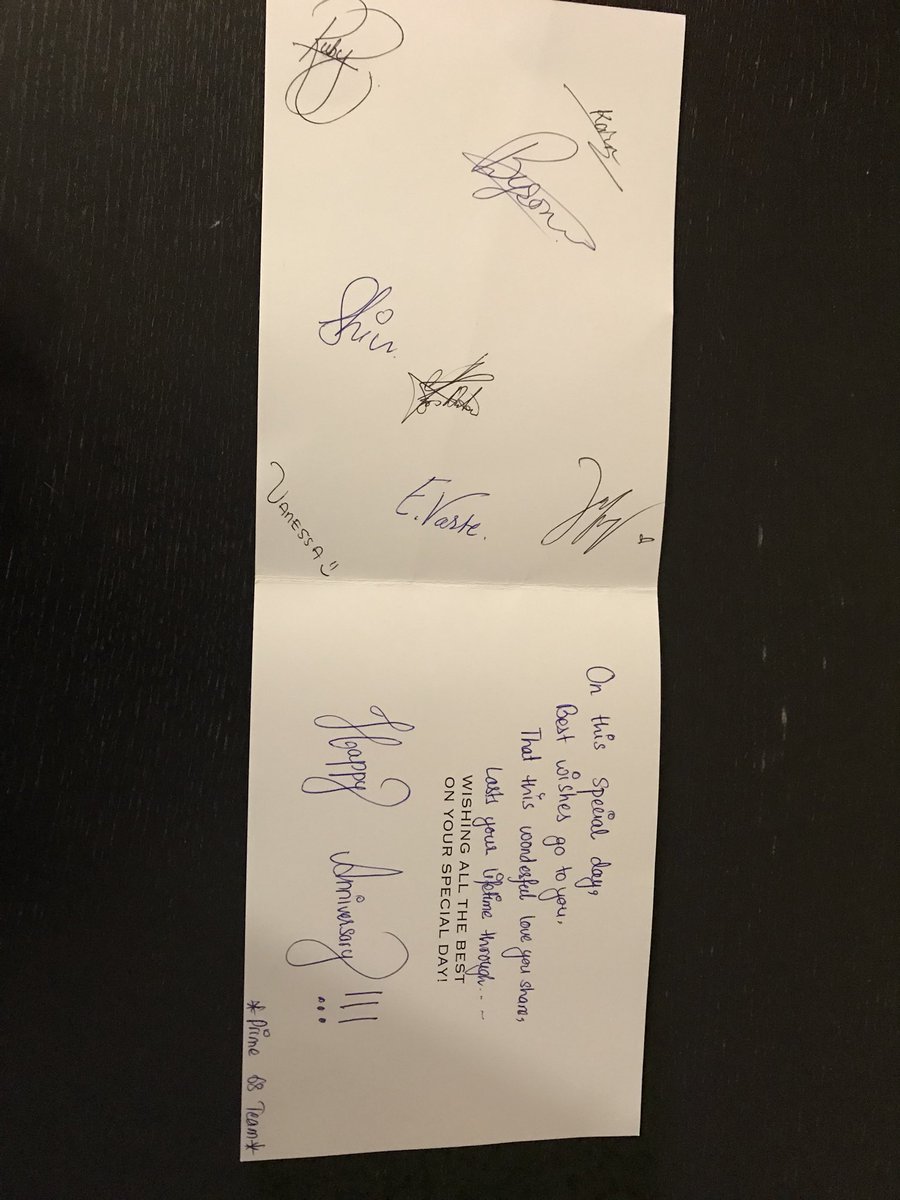 Ruby
Byson
Shiv.
E. Vaste.
VANESSA
On this special day,
Best wishes go to you,
That this wonderful love you share,
Last your lifetime through...~
WISHING ALL THE BEST
ON YOUR SPECIAL DAY!
Happy Anniversary!!!
*Prime 68 Team*